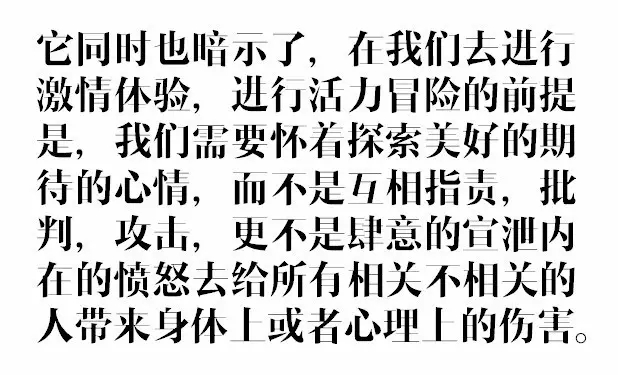 它同时也暗示了，在我们去进行
激情体验，进行活力冒险的前提
是，我们需要怀着探索美好的期
待的心情，而不是互相指责，批
判，攻击，更不是肆意的宣泄内
在的愤怒去给所有相关不相关的
人带来身体上或者心理上的伤害。